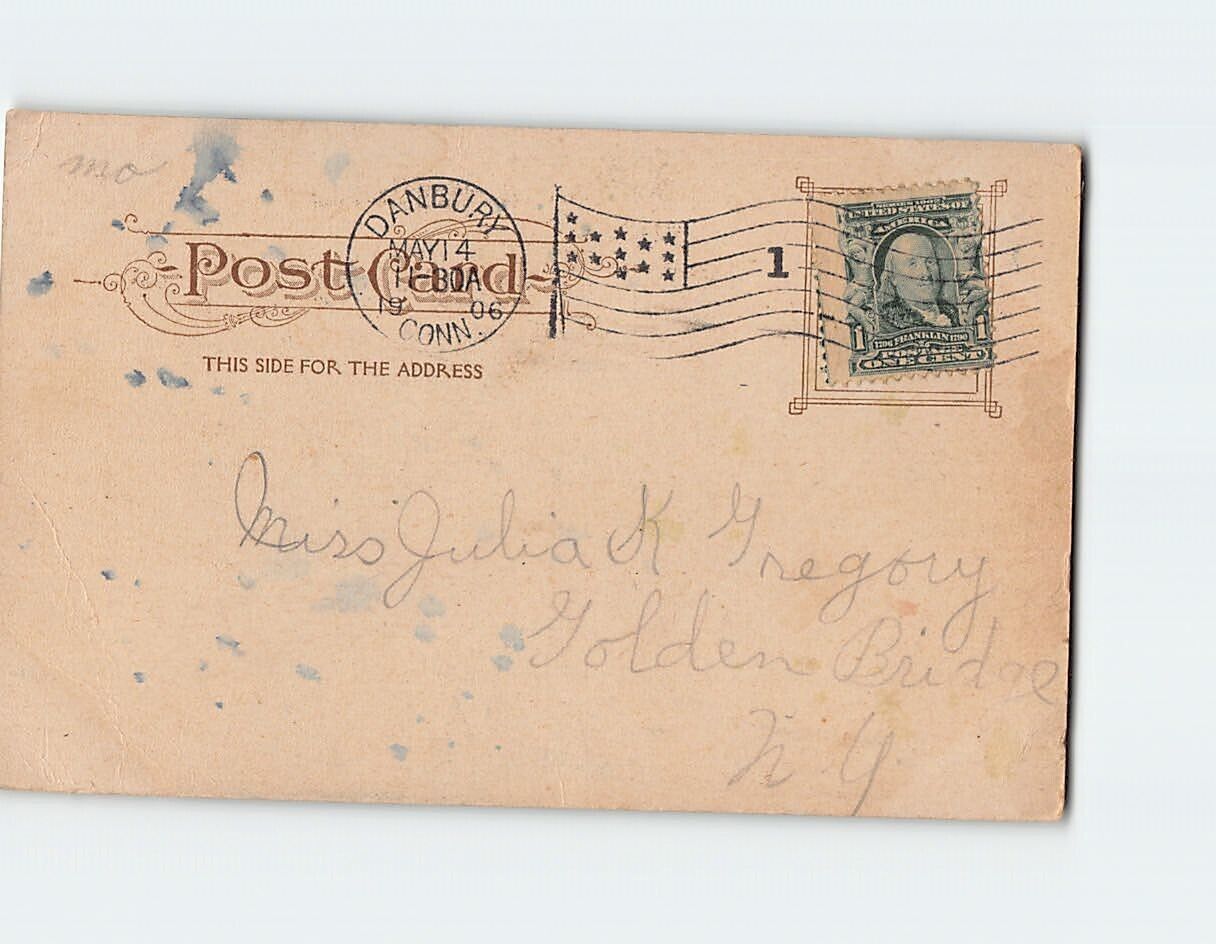 mo
DANBURY
MAY 14
11-30A
1906
CONN.
1
Post Card
THIS SIDE FOR THE ADDRESS
SERIES 1902
UNITED STATES OF
AMERICA
1706 FRANKLIN 1790
1 POSTAGE 1
ONE CENT
Miss Julia K Gregory
Golden Bridge
N Y